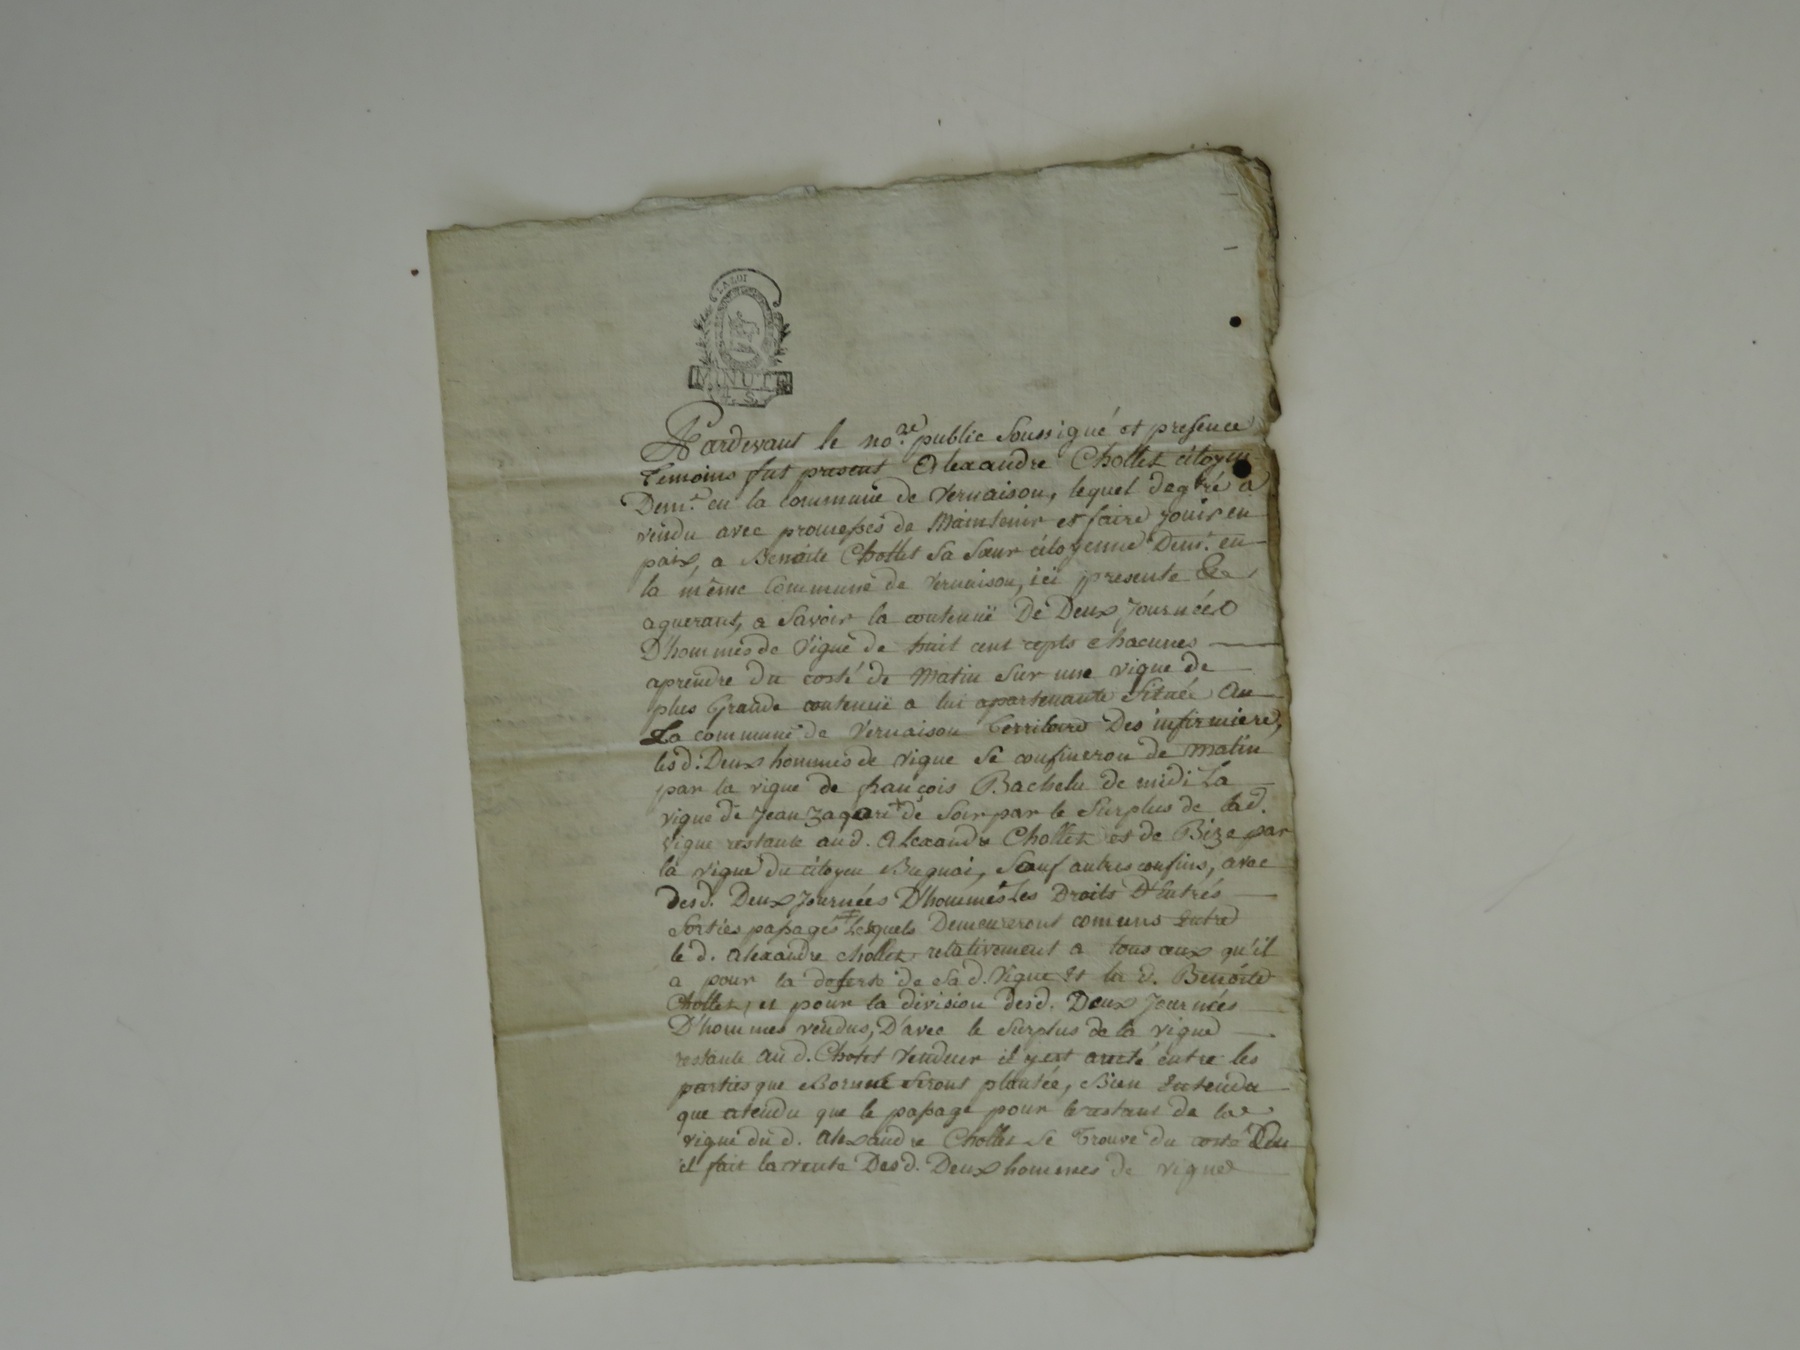 LA LOI
MINUTE
4. S.
Pardevant le no.re public Soussigué et presence
temoins fut present Alexandre Chollet citoyen
Dem.t en la commune de Vernaison, lequel degré a
vendu avec promesses de Maintenir et faire jouir en
paix, a Benoite Chollet Sa Sœur citoyenne Dem.t en
la même Commune de Vernaison, ici presente &
aquerant, a Savoir la contenuë De Deux Journées
D'hommes de Vigne de huit cent cepts chacunes
aprendre du costé de Matin Sur une vigne de
plus Grande contenuë a lui apartenante Située En
La commune de Vernaison Territoire Des infirmiere,
lesd. Deux hommes de vigne Se confineron de matin
par la vigne de françois Bachelu de midi La
vigne de Jean Zaqari de Soir par le Surplus de lad.
vigne restante aud. Alexandre Chollet et de Bize par
la vigne du citoyen Sauf autres confins, avec
desd. Deux Journées D'hommes Les Droits D'Entrés
Sorties passages Lesquels Demeureront comuns Entre
le d. Alexandre chollet relativement a tous ceux qu'il
a pour la deserte de Sad. Vigne Et la d. Benoite
Chollet, et pour la division desd. Deux Journées
D'hommes vendus, D'avec le Surplus de la vigne
restante aud. Chollet Vendeur il y est areté entre les
parties que Borne Seront plantée, Bien Entendu
que atendu que le passage pour le restant de la
vigne du d. Alexandre Chollet Se Trouve du costé Dou
il fait la vente Desd. Deux hommes de vigne